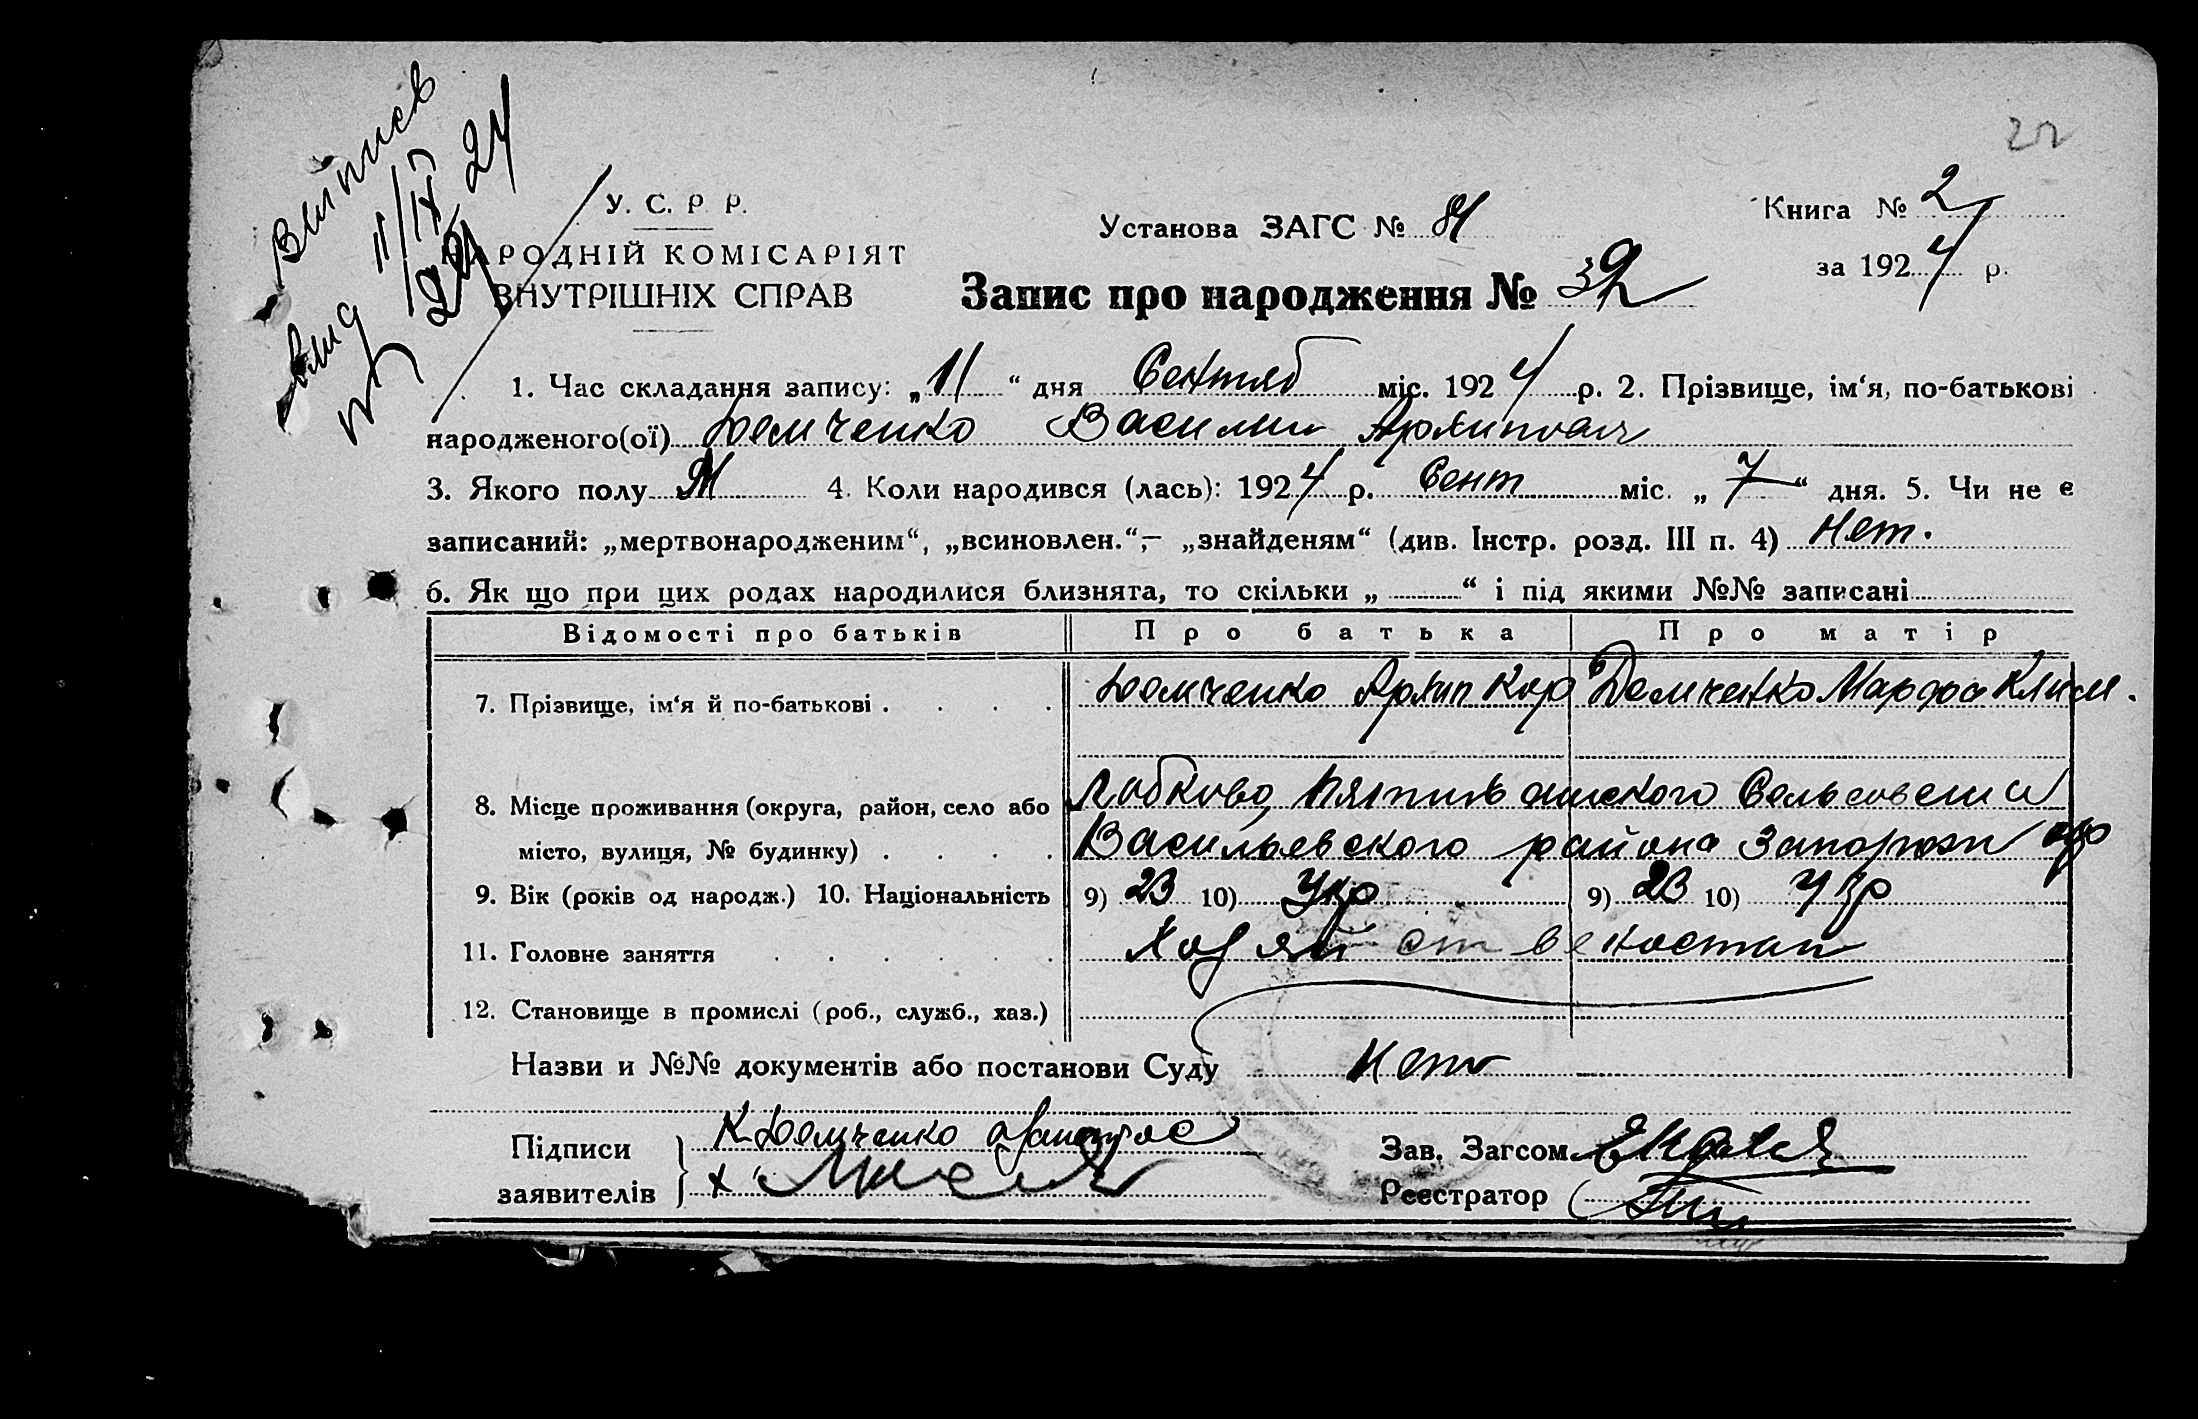 22
Выпись
11/IX 24
У. С. Р. Р.
НАРОДНІЙ КОМІСАРІЯТ
ВНУТРІШНІХ СПРАВ
Установа ЗАГС № 81
Запис про народження № 32
Книга № 2
за 1924 р.
1. Час складання запису: „11“ дня Сентяб міс. 1924 р. 2. Прізвище, ім‘я, по-батькові
народженого(ої) Демченко Василий Архипович
3. Якого полу М 4. Коли народився (лась): 1924 р. Сент міс. „7“ дня. 5. Чи не є
записаний: „мертвонародженим“, „всиновлен.“,— „знайденям“ (див. Інстр. розд. III п. 4) Нет.
6. Як що при цих родах народилися близнята, то скільки „ “ і під якими №№ записані
Відомості про батьків Про батька Про матір
7. Прізвище, ім‘я й по-батькові Демченко Архип Кор Демченко Марфа Клим.
8. Місце проживання (округа, район, село або Лобково, Сельсовета
місто, вулиця, № будинку) Васильевского района Запорож окр
9. Вік (років од народж.) 10. Національність 9) 23 10) Укр 9) 23 10) Укр
11. Головне заняття
12. Становище в промислі (роб., служб., хаз.)
Назви и №№ документів або постанови Суду Нет
Підписи К Демченко
заявителів
Зав. Загсом
Реєстратор